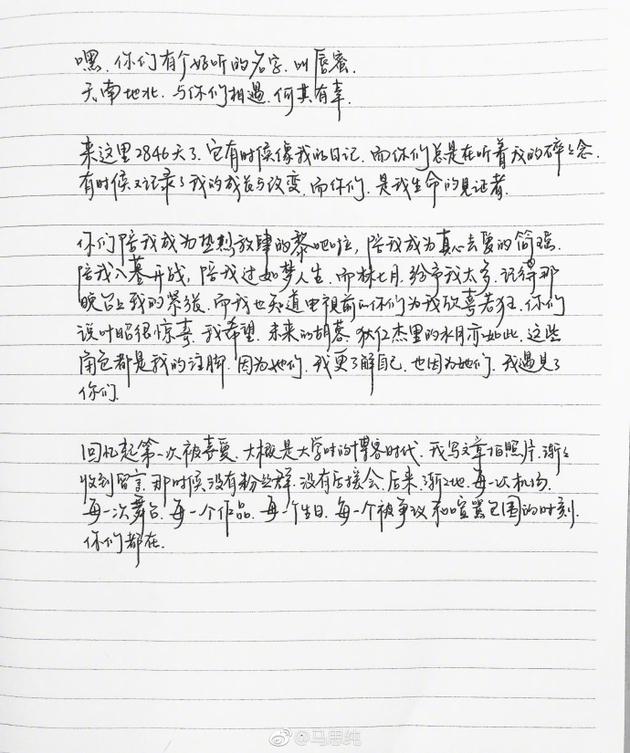 嘿、你们有个好听的名字、叫唇蜜、
天南地北、与你们相遇、何其有幸、
来这里2846天了、它有时候像我的日记、而你们总是在听着我的碎碎念、
有时候又记录了我的成长与改变、而你们、是我生命的见证者、
你们陪我成为热烈放肆的黎吧啦，陪我成为真心去爱的简瑶、
陪我入墓开战，陪我过如梦人生、而林七月、给予我太多、记得那
晚台上我的紧张、而我也知道电视前的你们为我欣喜若狂、你们
说叶昭很惊喜、我希望、未来的胡蓉、狄仁杰里的水月亦如此、这些
角色都是我的注脚、因为她们、我更了解自己、也因为她们、我遇見了
你们、
回忆起第一次被喜爱、大概是大学时的博客时代、我写文章拍照片、渐々
收到留言、那时候没有粉丝群、没有后援会、后来、渐々地、每一次机场、
每一次舞台、每一个作品、每一个生日、每一个被争议和喧嚣包围的时刻、
你们都在、
@马思纯